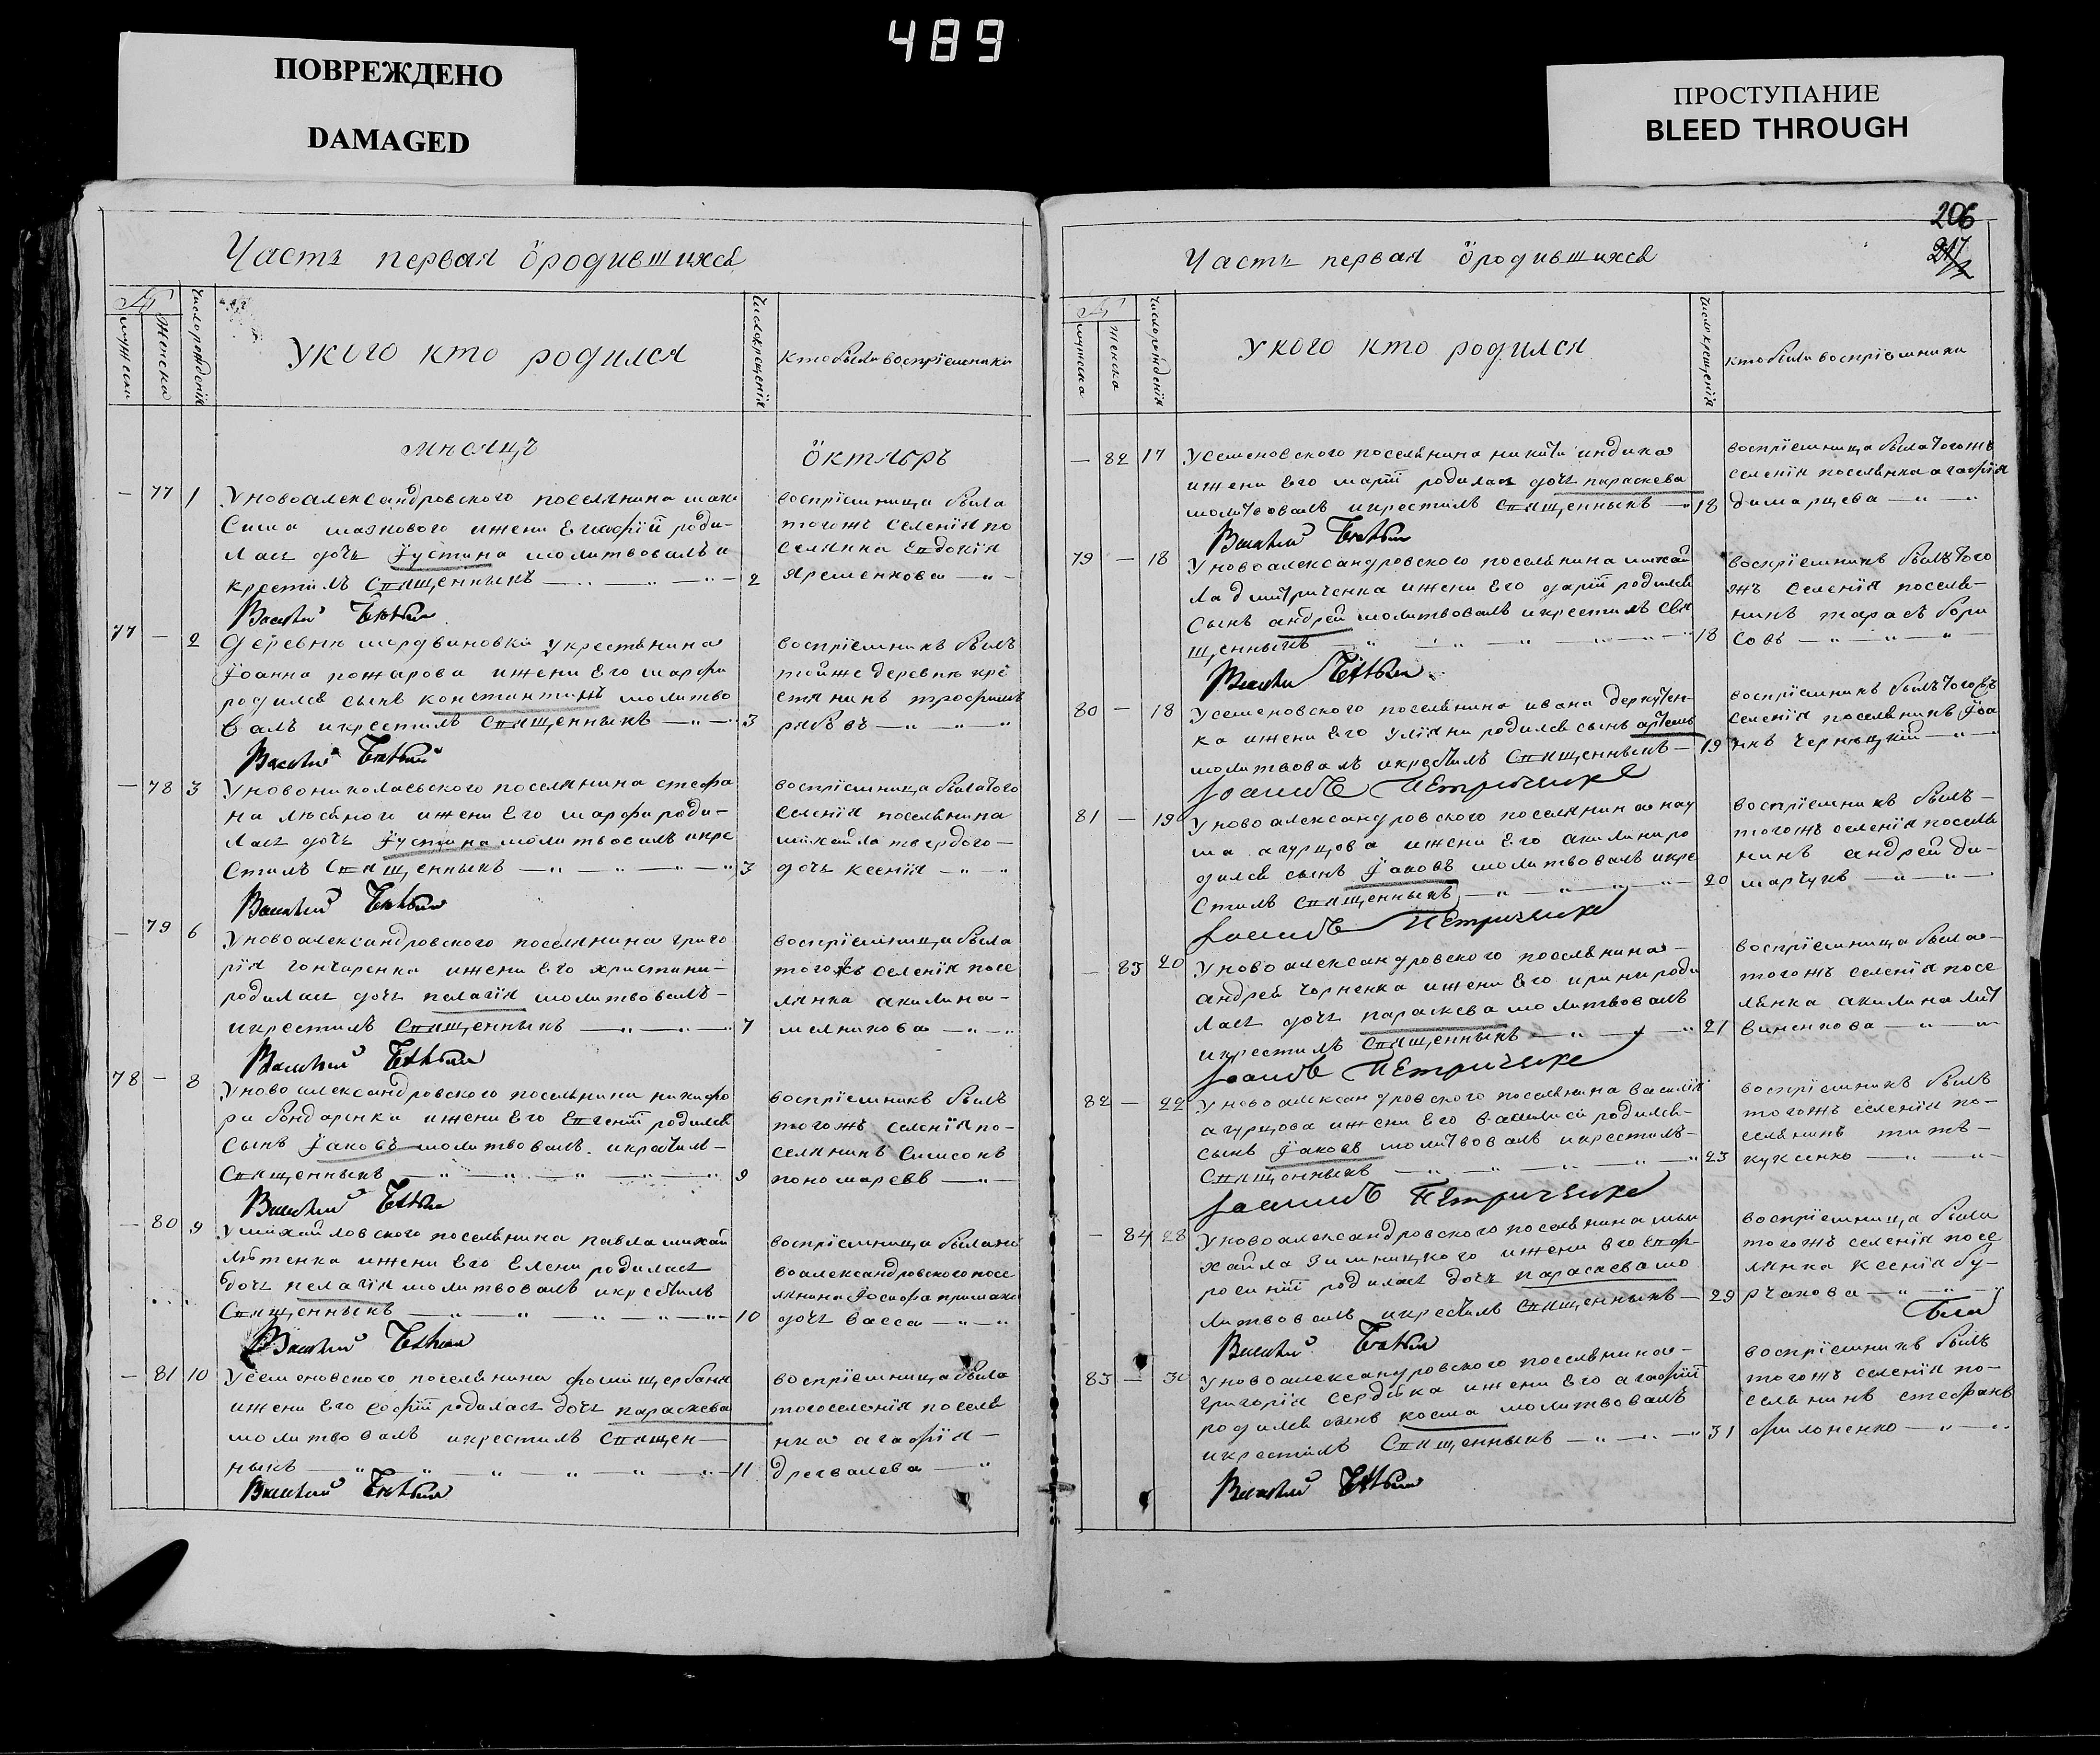 489
ПОВРЕЖДЕНО
DAMAGED
ПРОСТУПАНИЕ
BLEED THROUGH
Часть первая ӧродившихся
№
мужеска
женска
число рождения
У кого кто родился
число крещенія
кто были воспріемники
мѣсяцъ
Ӧктябрь
— 77 1
У новоалександровского поселянина макси
Сима мазнового и жены Его роди-
лась дочь Іустина молитвовалъ и
крестилъ Священникъ 2
Василій
воспріемница была
тогожъ селенія по
селянка Евдокія
Яременкова
77 — 2
деревни мордвиновки у крестьянина
Іоанна пожарова и жены Его марфи
родился сынъ константинъ молитво
валъ и крестилъ Священникъ 3
Василій
воспріемникъ былъ
тойже деревни кре
стянинъ трофимъ
рябовъ
— 78 3
У новониколаевского поселянина стефа
на лѣсного и жены Его марфи роди-
лась дочь Іустина молитвовалъ и кре
стилъ Священникъ 3
Василій
воспріемница была того
селенія поселянина
михайла твердого
дочь ксенія
— 79 6
У новоалександровского поселянина григо
рія гончаренка и жены Его христини
родилась дочь пелагія молитвовалъ
и крестилъ Священникъ 7
Василій
воспріемница была
тогожъ селенія посе
лянка акилина
мелникова
78 — 8
У новоалександровского поселянина никифо
ра бондаренка и жены Его Евгеніи родился
сынъ Іаковъ молитвовалъ и крестил
Священникъ 9
Василій
воспріемникъ былъ
тогожъ селенія по-
селянинъ Симеонъ
пономаревъ
— 80 9
У михайловского поселянина павла михай
лютенка и жены Его Елени родилась
дочь пелагія молитвовалъ и крестилъ
Священникъ 10
Василій
воспріемница была но
воалександровского посе
лянина Іосифа примака
дочь васса
— 81 10
У семеновского поселянина фоми щербани
и жены Его софіи родилась дочь параскева
молитвовалъ и крестилъ Священ-
никъ 11
Василій
воспріемница была
того селенія поселя
нка агафія
дрегвалева
206
217
Часть первая ӧродившихся
№
мужеска
женска
число рожденія
У кого кто родился
число крещенія
кто были воспріемники
— 82 17
У семеновского поселянина никити индика
и жены Его маріи родилась дочь параскева
молитвовалъ и крестилъ Священникъ 18
Василій
воспріемница была тогожъ
селенія поселянка агафія
димарцева
79 — 18
У новоалександровского поселянина михай
ла дмитриченка и жены Его даріи родился
сынъ андрей молитвовалъ и крестилъ Свя
щенникъ 18
Василій
воспріемникъ былъ того
жъ селенія поселя-
нинъ тарасъ бори
совъ
80 — 18
У семеновского поселянина ивана деркучен-
ка и жены Его уліяни родился сынъ артемъ
молитвовалъ и крестилъ Священникъ 19
Іоаннъ Петриченко
воспріемникъ былъ тогожъ
селенія поселянинъ Іоа
ннъ чернецкій
81 — 19
У новоалександровского поселянина нау
ма агурцова и жены Его акилини ро
дился сынъ Іаковъ молитвовалъ и кре
стилъ Священникъ 20
Іоаннъ Петриченко
воспріемникъ былъ
тогожъ селенія поселя
нинъ андрей ди-
марчукъ
— 83 20
У новоалександровского поселянина
андрея чорненка и жены Его ирини роди
лась дочь параскева молитвовалъ
и крестилъ Священникъ 21
Іоаннъ Петриченко
воспріемница была
тогожъ селенія посе
лянка акилина лит
виненкова
82 — 22
У новоалександровского поселянина василія
агурцова и жены Его василиси родился
сынъ Іаковъ молитвовалъ и крестилъ
Священникъ 23
Іоаннъ Петриченко
воспріемникъ былъ
тогожъ селенія по-
селянинъ титъ
куксенко
— 84 28
У новоалександровского поселянина ми
хайла зимницкого и жены Его Евф-
росиніи родилась дочь параскева мо
литвовалъ и крестилъ Священникъ 29
Василій
воспріемница была
тогожъ селенія посе
лянка ксенія бу-
рчакова
83 — 30
У новоалександровского поселянина
григорія сердюка и жены Его агафіи
родился сынъ косма молитвовалъ
и крестилъ Священникъ 31
Василій
воспріемникъ былъ
тогожъ селенія по-
селянинъ стефанъ
филоненко